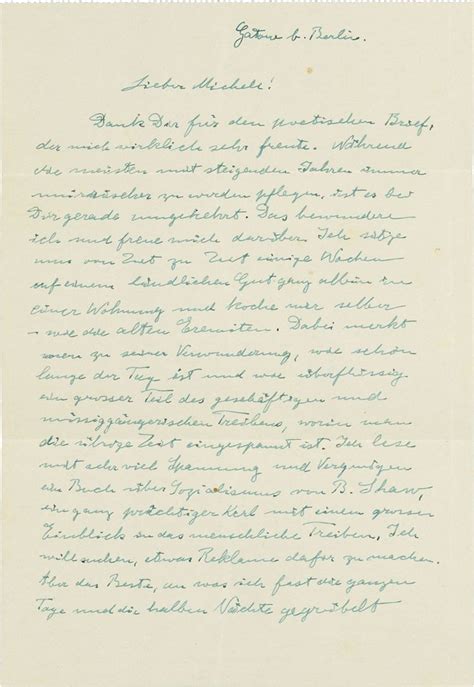 Gatow b. Berlin.
Lieber Michele!
Dank Dir für den poetischen Brief,
der mich wirklich sehr freute. Während
die meisten mit steigenden Jahren immer
mürrischer zu werden pflegen, ist es bei
Dir gerade umgekehrt. Das bewundere
ich und freue mich darüber. Ich sitze
nun von Zeit zu Zeit einige Wochen
auf einem ländlichen Gut ganz allein in
einer Wohnung und koche mir selber
– wie die alten Eremiten. Dabei merkt
man zu seiner Verwunderung, wie schön
lange der Tag ist und wie überflüssig
ein grosser Teil des geschäftigen und
müssiggängerischen Treibens, worin man
die übrige Zeit eingespannt ist. Ich lese
mit sehr viel Spannung und Vergnügen
ein Buch über Sozialismus von B. Shaw,
ein ganz prächtiger Kerl mit einem grossen
Einblick in das menschliche Treiben. Ich
will suchen, etwas Reklame dafür zu machen.
Aber das Beste, an was ich fast die ganzen
Tage und die halben Nächte gegrübelt